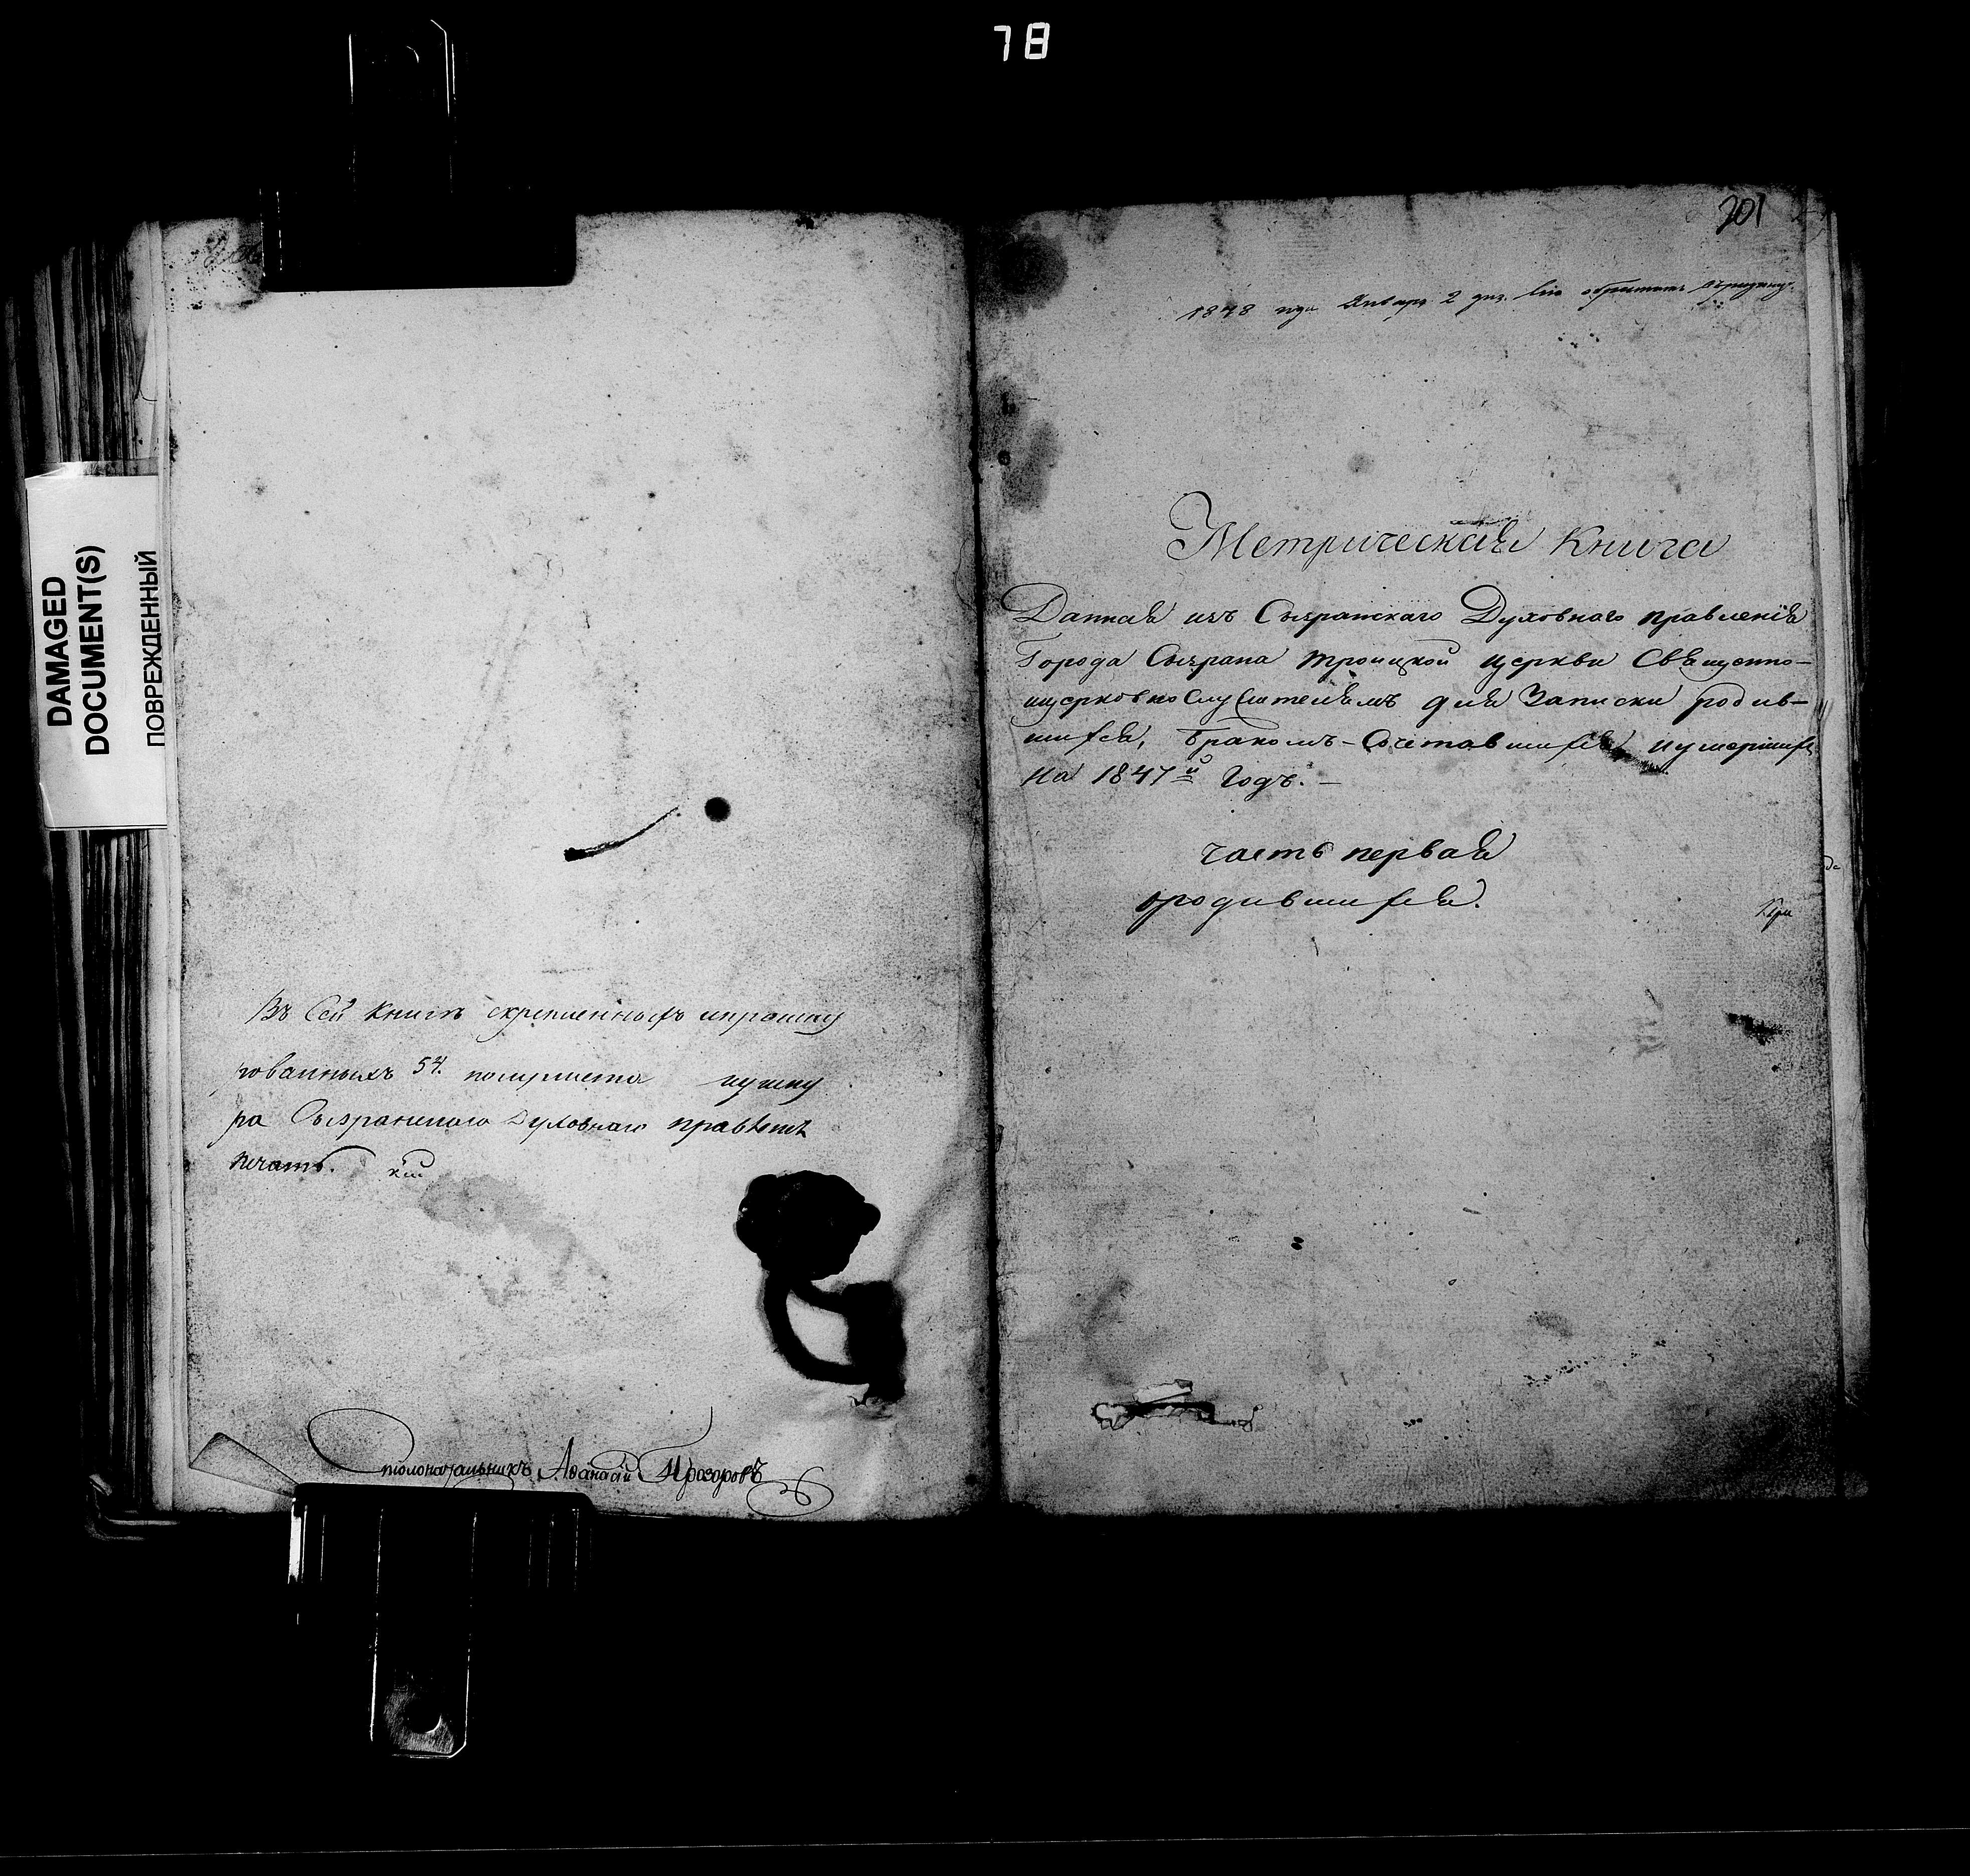 78
DAMAGED
DOCUMENT(S)
ПОВРЕЖДЕННЫЙ
Въ Сей Книгѣ скрепленныхъ ипрошну
рованныхъ 54. полулиста
ра Сызранскаго Духовнаго
печать.
Столоначальникъ Афанасій Прозоровъ
201
1848 года Января 2 дня.
Метрическая Книга
Данная изъ Сызранскаго Духовнаго правленія
Города Сызрана Троицкой церкви Священно-
ицерковнослужителямъ для Записки родив-
шихся, Бракомъ-Сочетавшихся иумершихъ
на 1847й Годъ.-
часть первая
родившихся.